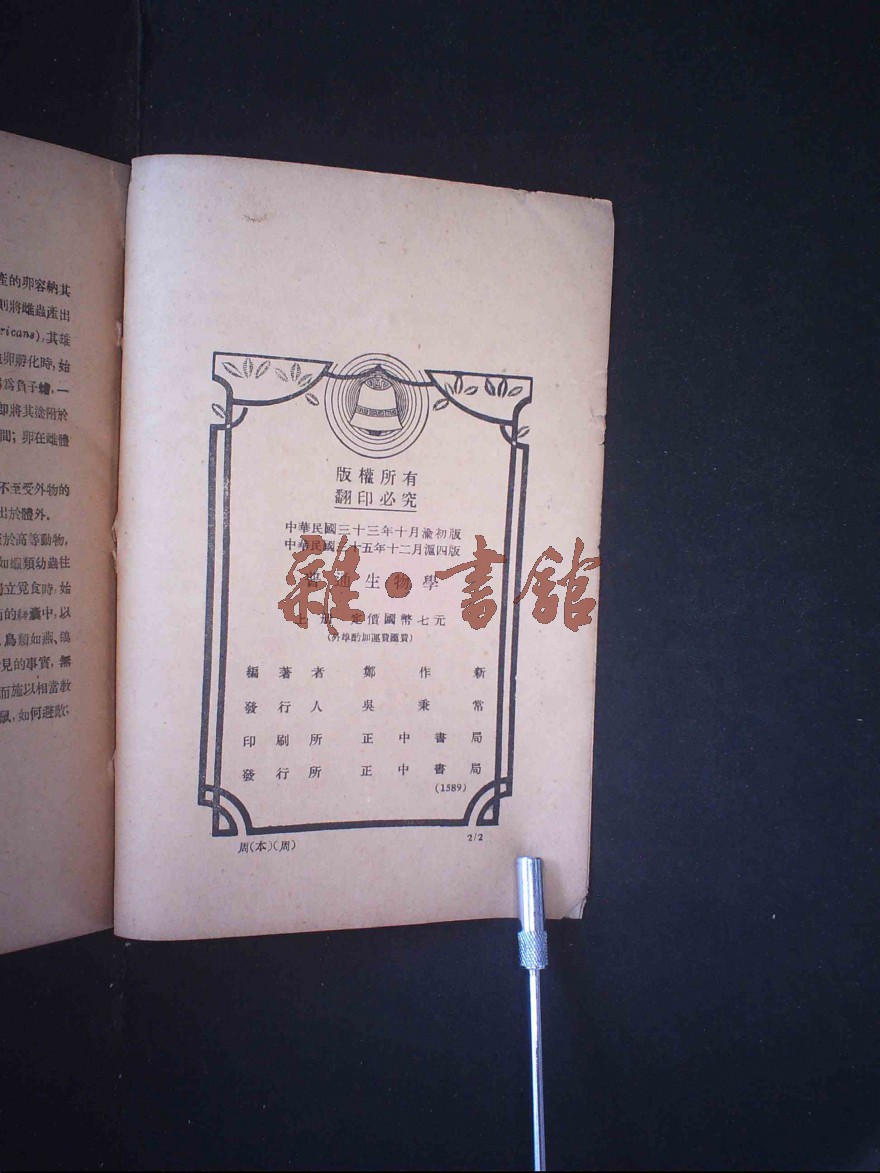 產的卵容納其
則將雌蟲產出
ricans),其雄
卵孵化時,始
爲負子蟾,一
卽將其塗附於
間;卵在雌體
不至受外物的
出於體外。
於高等動物,
如蝠類幼蟲住
獨立覓食時,始
的囊中,以
鳥類如燕、鴿
見的事實,無
而施以相當敎
鼠,如何避敵;
版權所有
翻印必究
中華民國三十三年十月渝初版
中華民國三十五年十二月滬四版
普通生物學
上册 定價國幣七元
(外埠酌加運費匯費)
編著者 鄭作新
發行人 吳秉常
印刷所 正中書局
發行所 正中書局
(1589)
周(本)(周) 2/2
雜·書館